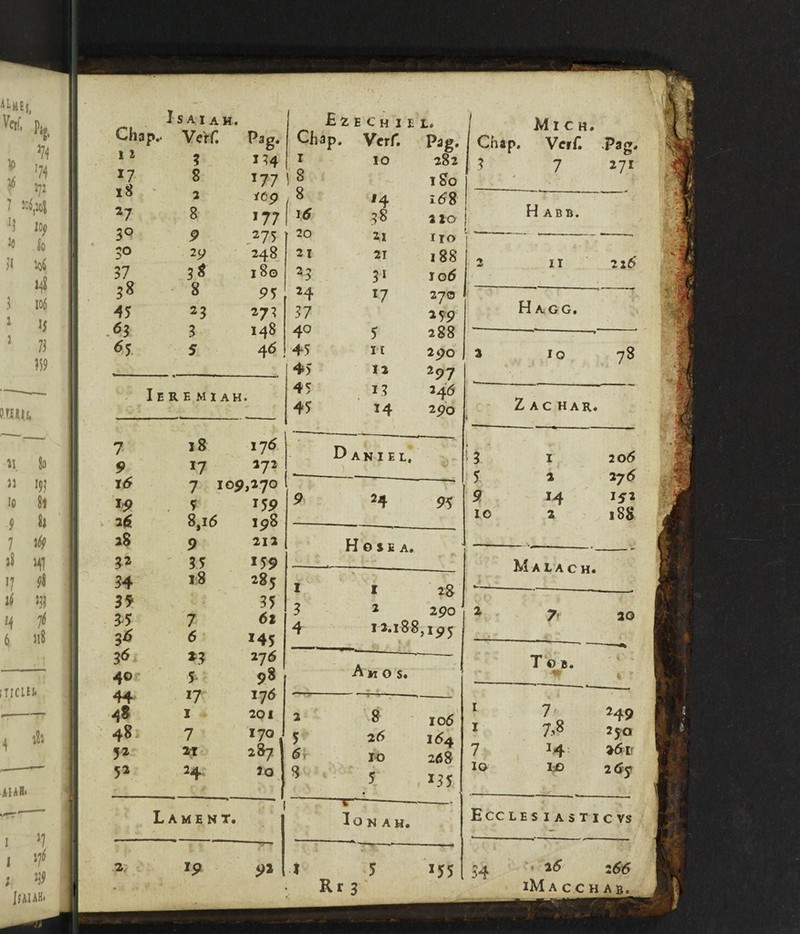 ISAIAH.
Chap. Verf. Pag.
12 3 134
17 8 177
18 2 169
27 8 177
30 9 275
30 29 248
37 38 180
38 8 95
45 23 273
63 3 148
65 5 46
IEREMIAH.
7 18 176
9 17 272
16 7 109,270
19 5 159
26 8,16 198
28 9 212
32 35 159
34 18 285
35 35
35 7 62
36 6 145
36 23 276
40 5 98
44 17 176
48 1 201
48 7 170
52 21 287
52 24 20
LAMENT.
2 19 92
EZECHIEL.
Chap. Verf. Pag.
1 10 282
8 180
8 14 168
16 38 220
20 21 110
21 21 188
23 31 106
24 17 270
37 259
40 5 288
45 11 290
45 12 297
45 13 246
45 14 290
DANIEL,
9 24 95
HOSEA.
1 1 28
3 2 290
4 12.188,195
AMOS.
2 8 106
5 26 164
6 10 268
8 5 135
IONAH.
1 5 155
Rr 3
MICH.
Chap. Verf. Pag.
3 7 271
HABB.
2 11 226
HAGG.
2 10 78
ZACHAR.
3 1 206
5 2 276
9 14 152
10 2 188
MALACH.
2 7 20
TOB.
1 7 249
1 7,8 250
7 14 261
10 10 265
ECCLESIASTICVS
34 26 266
1MACCHAB.